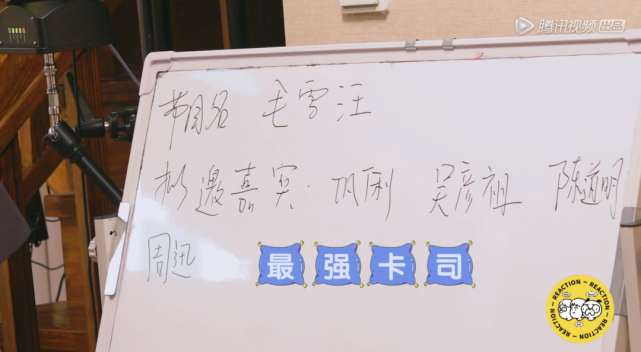 腾讯视频 出品
节目名 毛雪汪
拟邀嘉宾: 巩俐 吴彦祖 陈道明
周迅
最强卡司
REACTION · REACTION · REACTION · REACTION